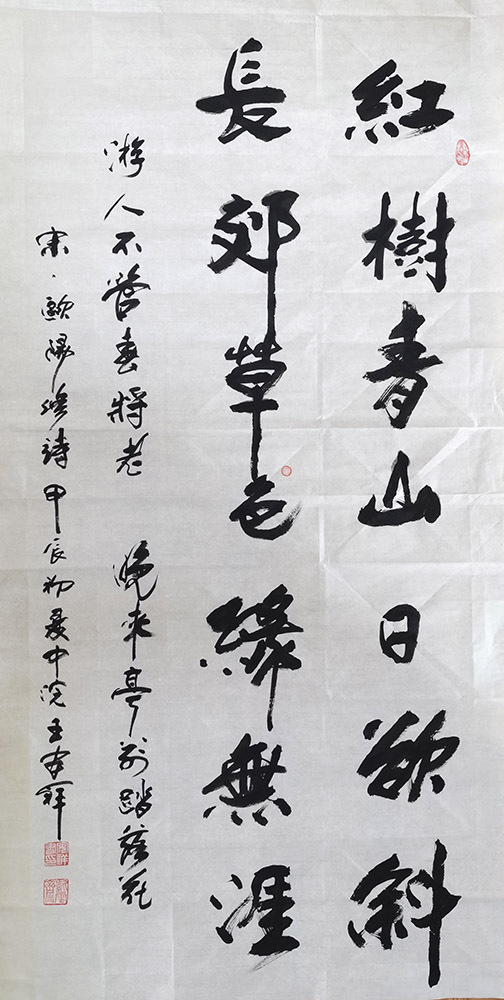 紅樹青山日欲斜
長郊草色綠無涯
游人不管春將老 晚來亭前踏落花
宋·歐陽修詩 甲辰初夏中浣 王